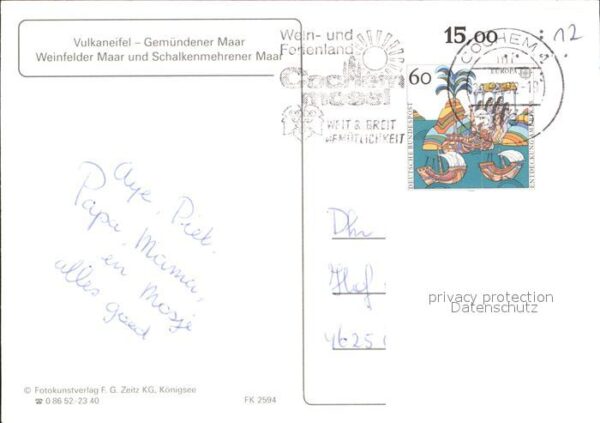 Vulkaneifel – Gemündener Maar
Weinfelder Maar und Schalkenmehrener Maar
Wein- und
Ferienland
Cochem
grüsst
WEIT & BREIT
GEMÜTLICHKEIT
15,00
12
COCHEM 1
60
EUROPA
DEUTSCHE BUNDESPOST
Papa, Mama,
en
alles goed
Dhr
Hof
4625
privacy protection
Datenschutz
© Fotokunstverlag F. G. Zeitz KG, Königsee
☎ 0 86 52 - 23 40
FK 2594